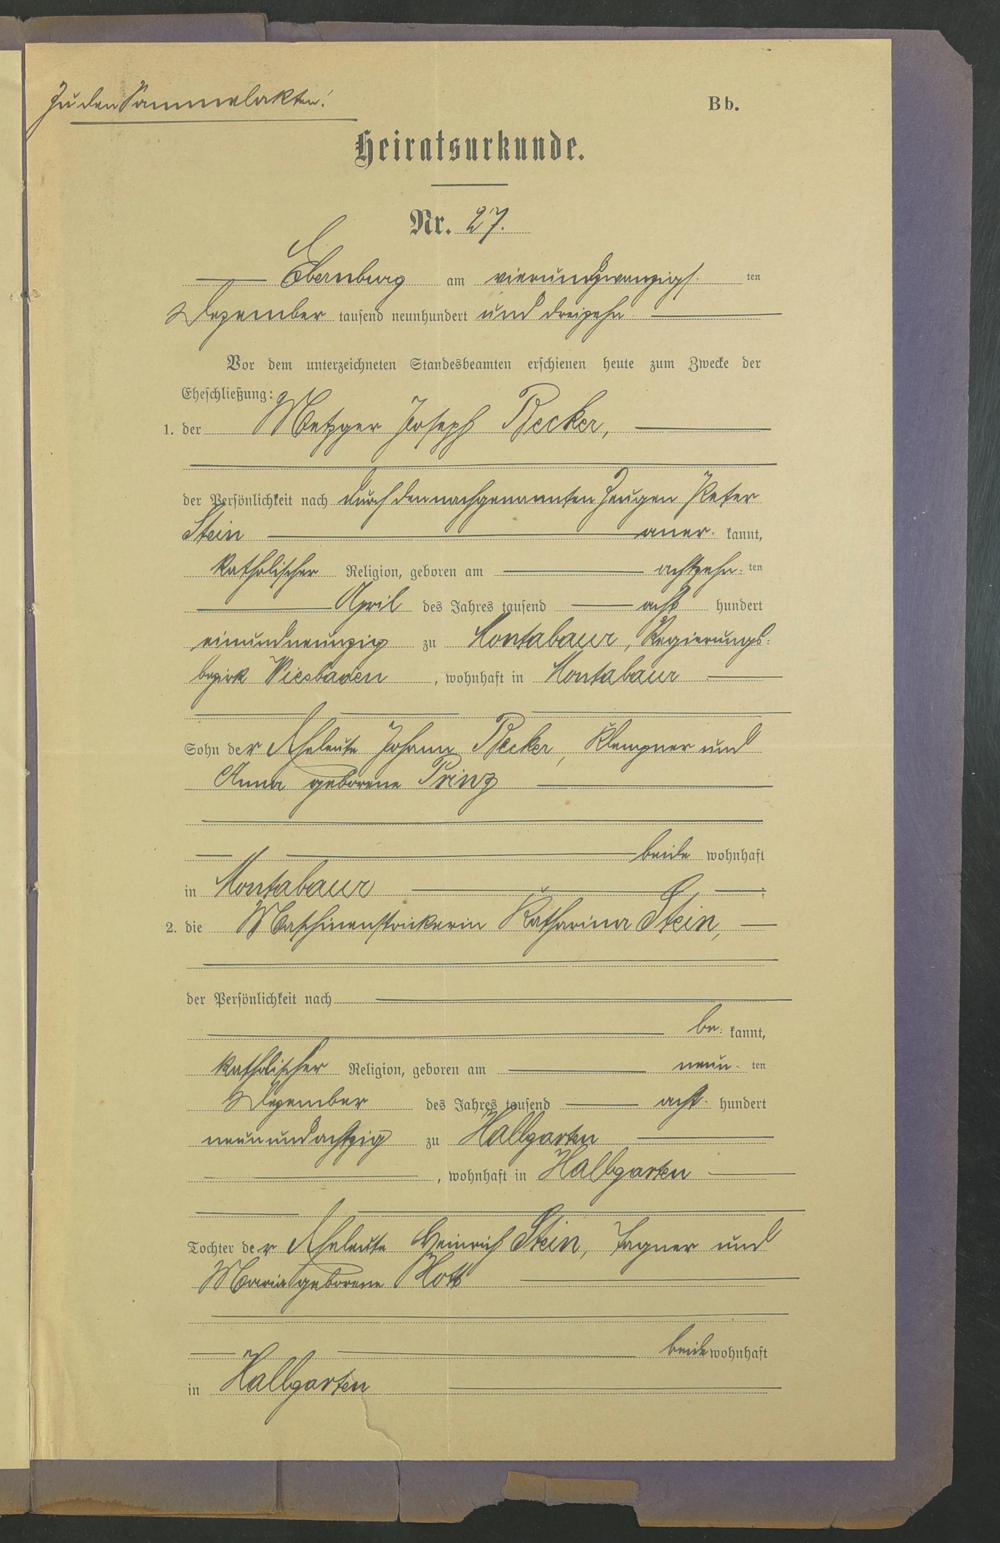 Zu den Sammelakten!
Bb.
Heiratsurkunde.
Nr. 27.
Ebernburg am vierundzwanzigs ten
Dezember tausend neunhundert und dreizehn
Vor dem unterzeichneten Standesbeamten erschienen heute zum Zwecke der
Eheschließung:
1. der Metzger Joseph Becker,
der Persönlichkeit nach durch den nachgenannten Zeugen Peter
Stein aner kannt,
katholischer Religion, geboren am achtzehn ten
April des Jahres tausend acht hundert
einundneunzig zu Montabaur, Regierungs-
bezirk Wiesbaden, wohnhaft in Montabaur
Sohn der Eheleute Johann Becker, Klempner und
Anna geborene Prinz
beide wohnhaft
in Montabaur;
2. die Maschinenstrickerin Katharina Stein,
der Persönlichkeit nach
be kannt,
katholischer Religion, geboren am neun ten
Dezember des Jahres tausend acht hundert
neunundachtzig zu Hallgarten
, wohnhaft in Hallgarten
Tochter der Eheleute Heinrich Stein, Tagner und
Maria geborene
beide wohnhaft
in Hallgarten